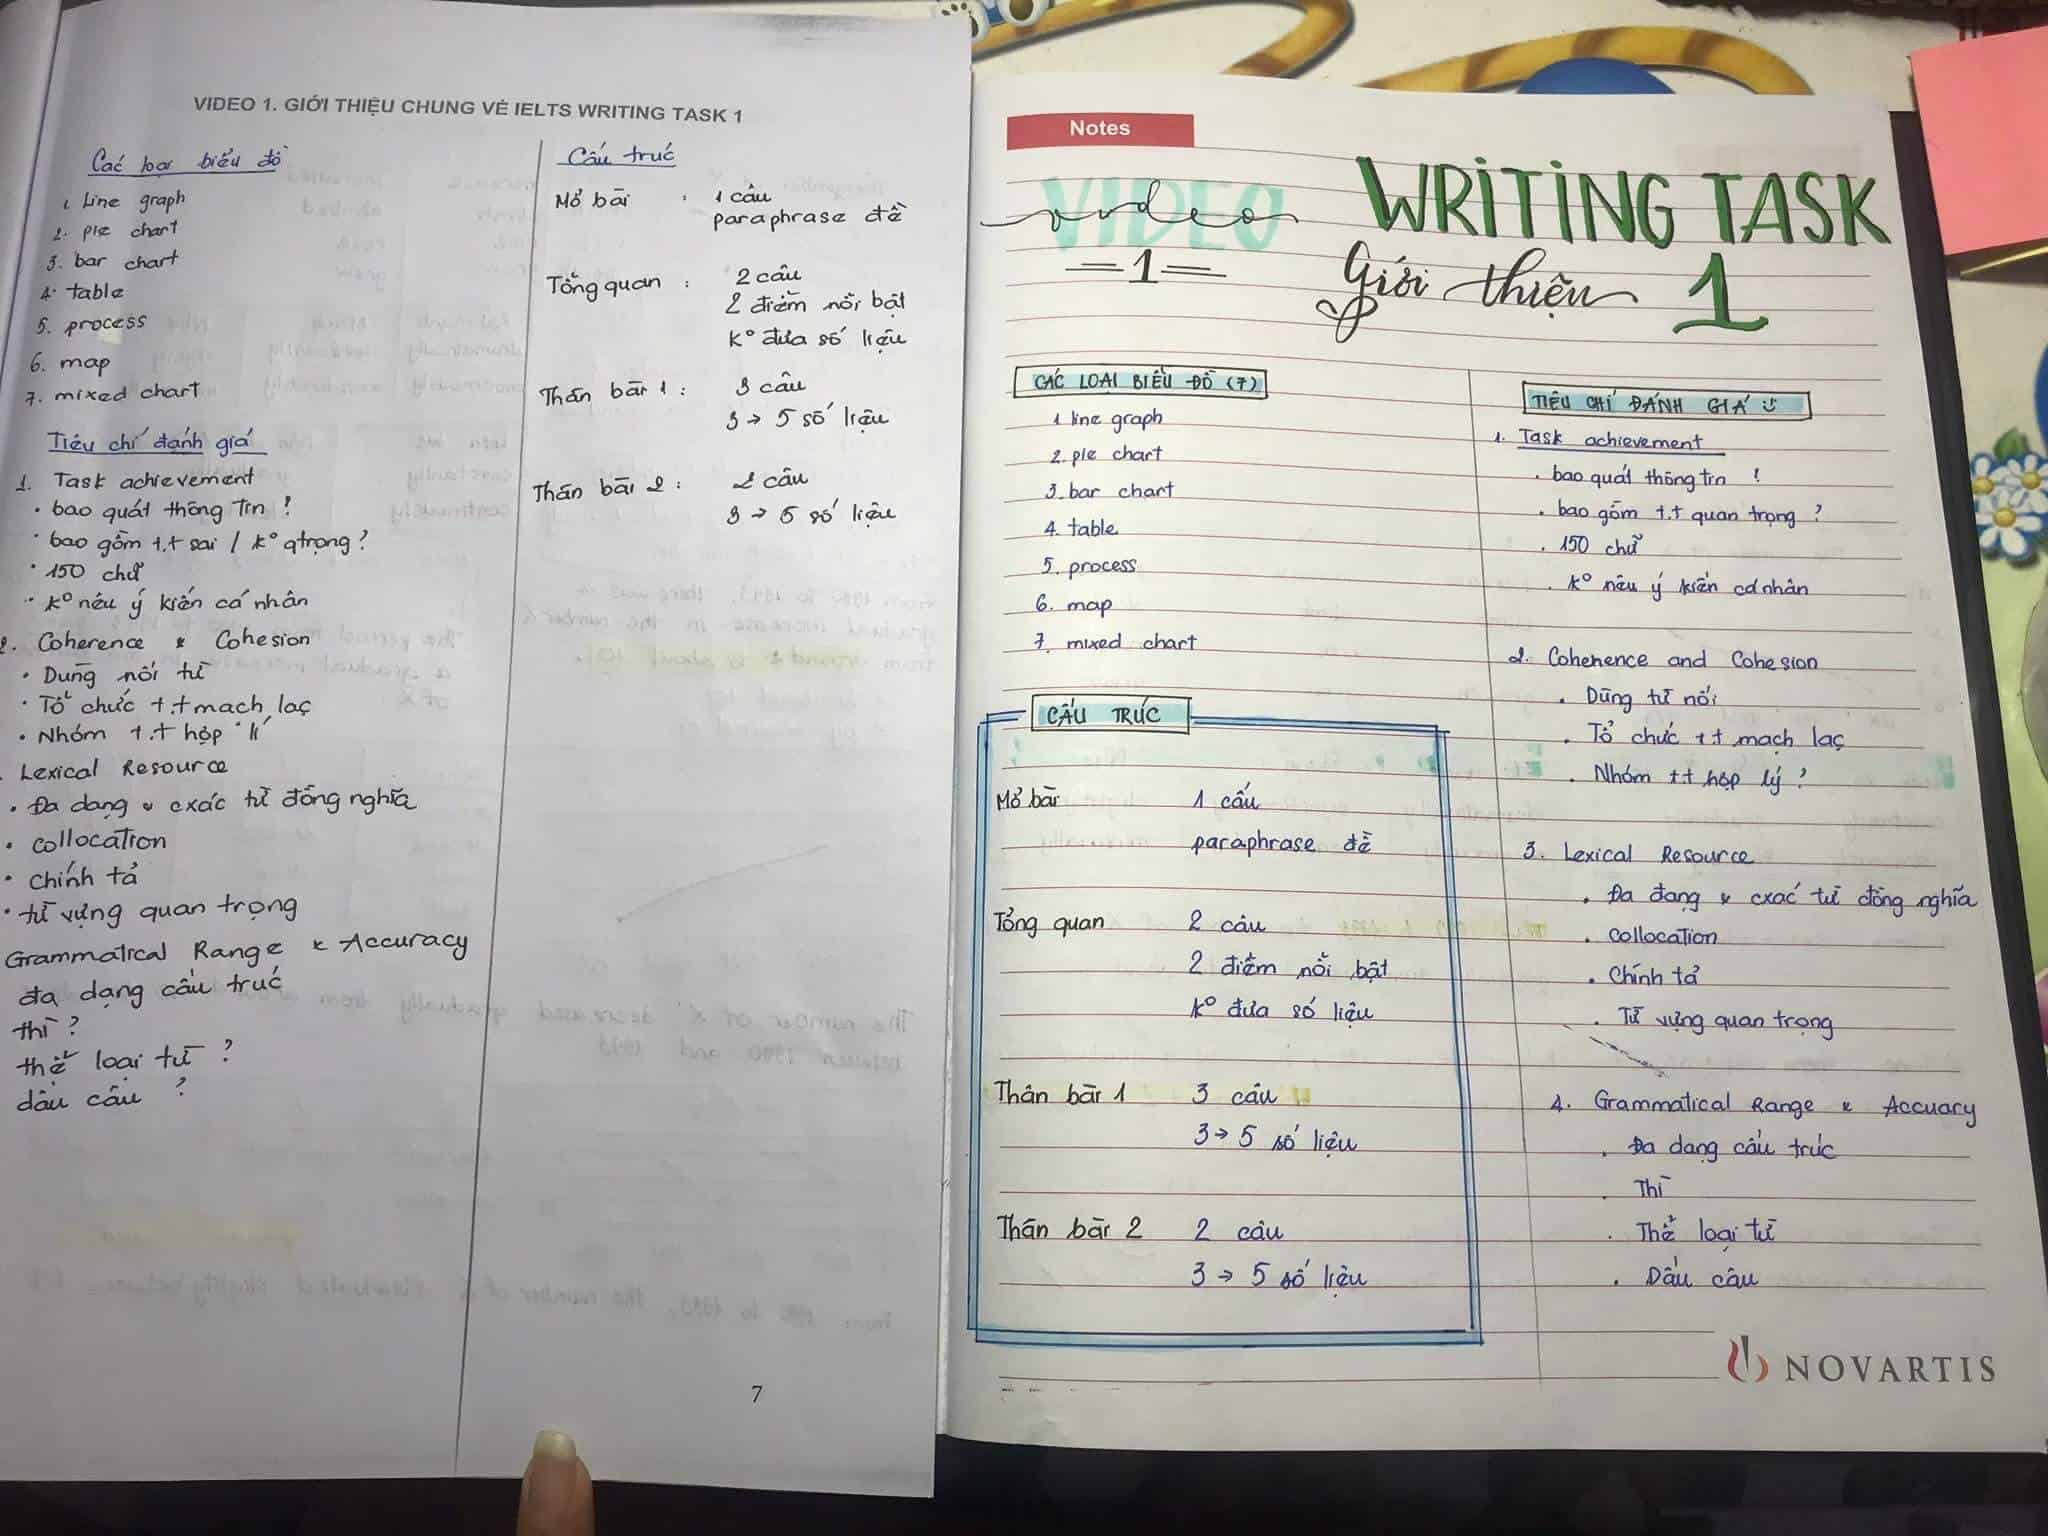 VIDEO 1. GIỚI THIỆU CHUNG VỀ IELTS WRITING TASK 1
Các loại biểu đồ
1. Line graph
2. pie chart
3. bar chart
4. table
5. process
6. map
7. mixed chart
Tiêu chí đánh giá
1. Task achievement
• bao quát thông tin ?
• bao gồm t.t sai / k° qtrọng ?
• 150 chữ
• k° nêu ý kiến cá nhân
2. Coherence & Cohesion
• Dùng nối từ
• Tổ chức t.t mạch lạc
• Nhóm t.t hợp lí
. Lexical Resource
• Đa dạng & cxác từ đồng nghĩa
• collocation
• chính tả
• từ vựng quan trọng
Grammatical Range & Accuracy
đa dạng cấu trúc
thì ?
thể loại từ ?
dấu câu ?
Cấu trúc
Mở bài : 1 câu
paraphrase đề
Tổng quan : 2 câu
2 điểm nổi bật
k° đưa số liệu
Thân bài 1 : 3 câu
3 → 5 số liệu
Thân bài 2 : 2 câu
3 → 5 số liệu
7
Notes
VIDEO
video
1
WRITING TASK
Giới thiệu 1
CÁC LOẠI BIỂU ĐỒ (7)
1 line graph
2. pie chart
3. bar chart
4. table
5. process
6. map
7. mixed chart
CẤU TRÚC
Mở bài 1 câu
paraphrase đề
Tổng quan 2 câu
2 điểm nổi bật
k° đưa số liệu
Thân bài 1 3 câu
3 → 5 số liệu
Thân bài 2 2 câu
3 → 5 số liệu
TIÊU CHÍ ĐÁNH GIÁ
1. Task achievement
. bao quát thông tin !
. bao gồm t.t quan trọng ?
. 150 chữ
. k° nêu ý kiến cá nhân
2. Coherence and Cohesion
. Dùng từ nối
. Tổ chức t.t mạch lạc
. Nhóm t.t hợp lý ?
3. Lexical Resource
. Đa dạng & cxác từ đồng nghĩa
. collocation
. Chính tả
. Từ vựng quan trọng
4. Grammatical Range & Accuacy
. Đa dạng cấu trúc
. Thì
. Thể loại từ
. Dấu câu
NOVARTIS